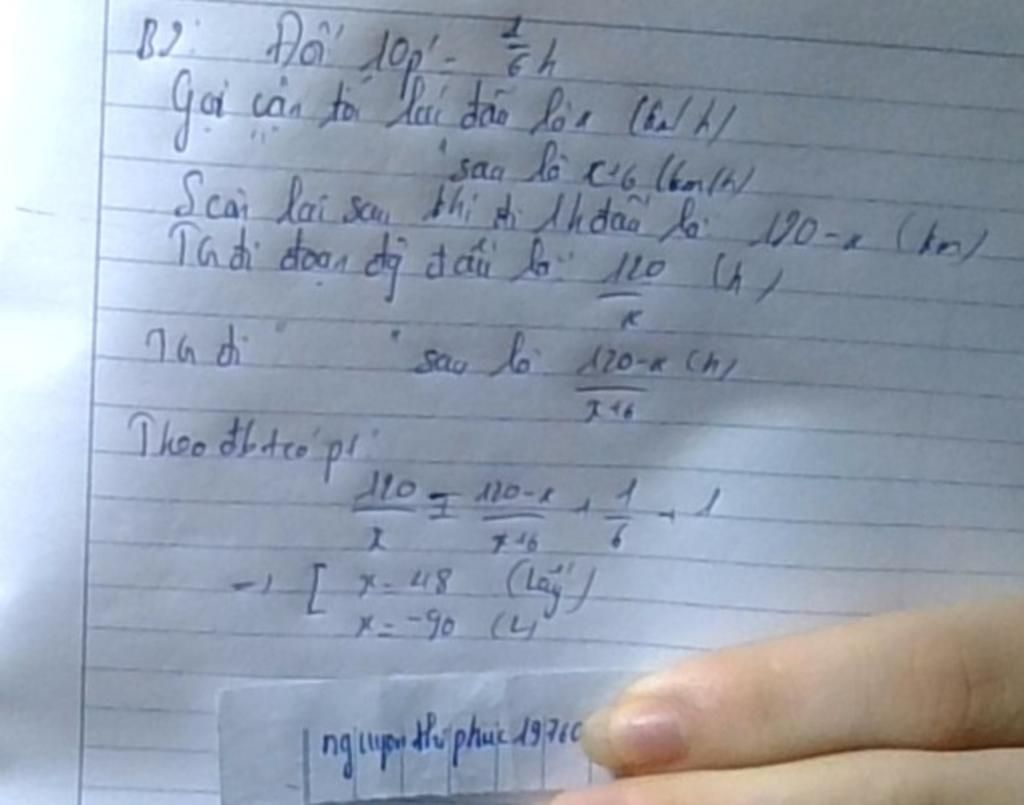 B2: Đổi 10p' = 1/6 h
Gọi vận tốc lúc đầu là x (km/h)
" sau là x+6 (km/h)
S còn lại sau khi đi 1h đầu là: 120-x (km)
TG đi đoạn đg đầu là: 120/x (h)
TG đi " " sau là 120-x/x+6 (h)
Theo đb ta có pt:
120/x = 120-x/x+6 + 1/6 + 1
→ [ x = 48 (Lấy)
x = -90 (L)
nguyenthiphuc1976